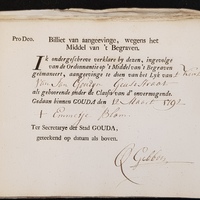 Pro Deo. Billiet van aangeevinge, wegens het
Middel van 't Begraven.
IK ondergeschreve verklare by dezen, ingevolge
van de Ordonnantie op 't Middel van 't Begraven
geëmaneert, aangevinge te doen van het Lyk van 't Kint
Van Jan
als gehoorende onder de Classis van d' onvermogende.
Gedaan binnen GOUDA den 12 Maart 179
Emmetje Blom
Ter Secretarye der Stad GOUDA,
geteekent op datum als boven.